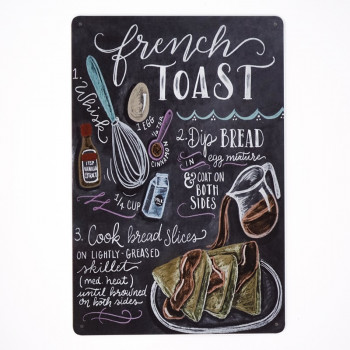 french
TOAST
1. Whisk
1 EGG
1 tsp
CINNAMON
1 tsp
VANILLA
EXTRACT
1/4 CUP
MILK
2. Dip BREAD
IN egg mixture
& COAT ON
BOTH
SIDES
3. Cook bread slices
ON LIGHTLY-GREASED
skillet
(med. heat)
until browned
on both sides